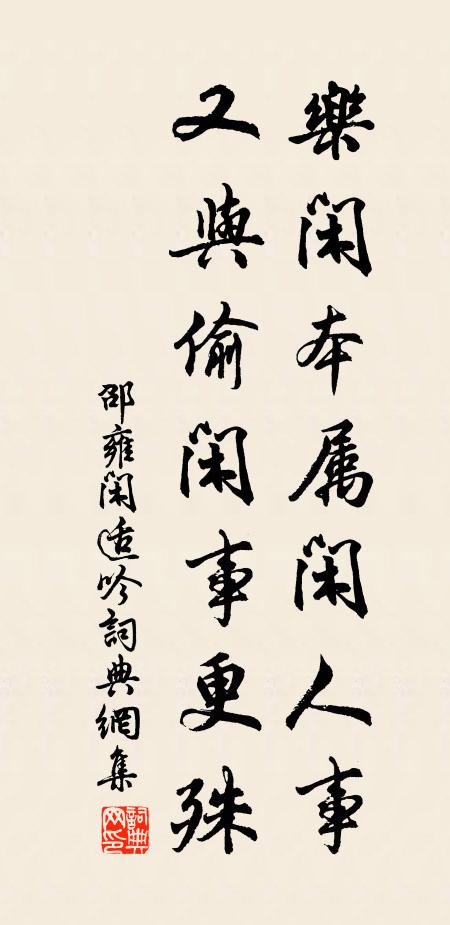 樂閑本属閑人事
又與偷閑事更殊
邵雍閑適吟詞典網集
詞典網印